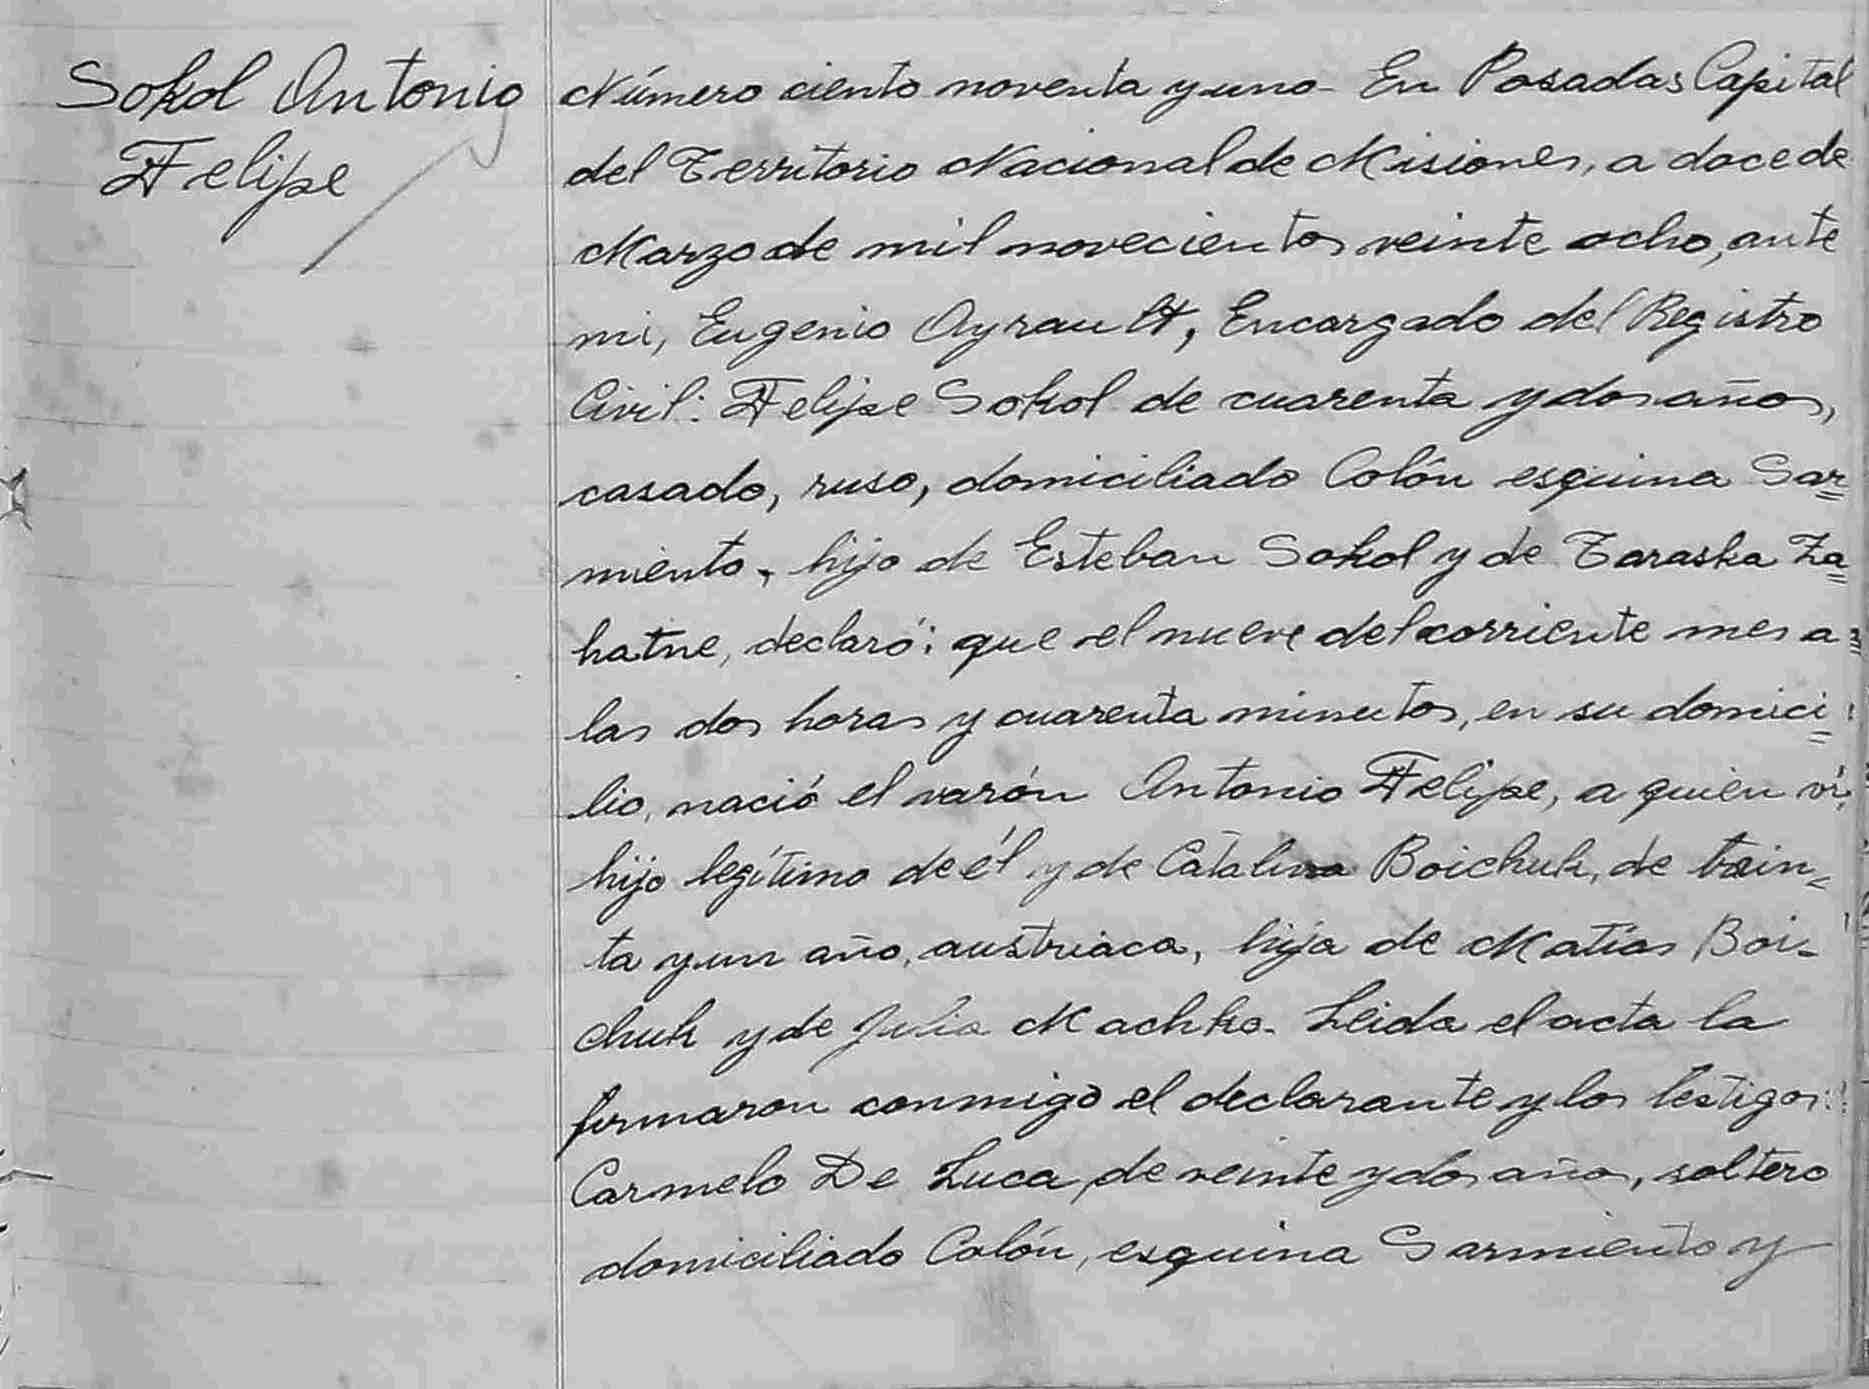 Sokol Antonio
Felipe
Número ciento noventa y uno - En Posadas Capital
del Territorio Nacional de Misiones, a doce de
Marzo de mil novecientos veinte ocho, ante
mi, Eugenio Ayrault, Encargado del Registro
Civil: Felipe Sokol de cuarenta y dos años,
casado, ruso, domiciliado Colón esquina Sar=
miento, hijo de Esteban Sokol y de Taraska Za=
hatne, declaró: que el nueve del corriente mes a
las dos horas y cuarenta minutos, en su domici=
lio, nació el varón Antonio Felipe, a quien ví,
hijo legítimo de él y de Catalina Boichuk, de train=
ta y un año, austriaca, hija de Matías Boi=
chuk y de Julia Machko. Leida el acta la
firmaron conmigo el declarante y los testigos:
Carmelo De Luca, de veinte y dos años, soltero
domiciliado Colón, esquina Sarmiento y